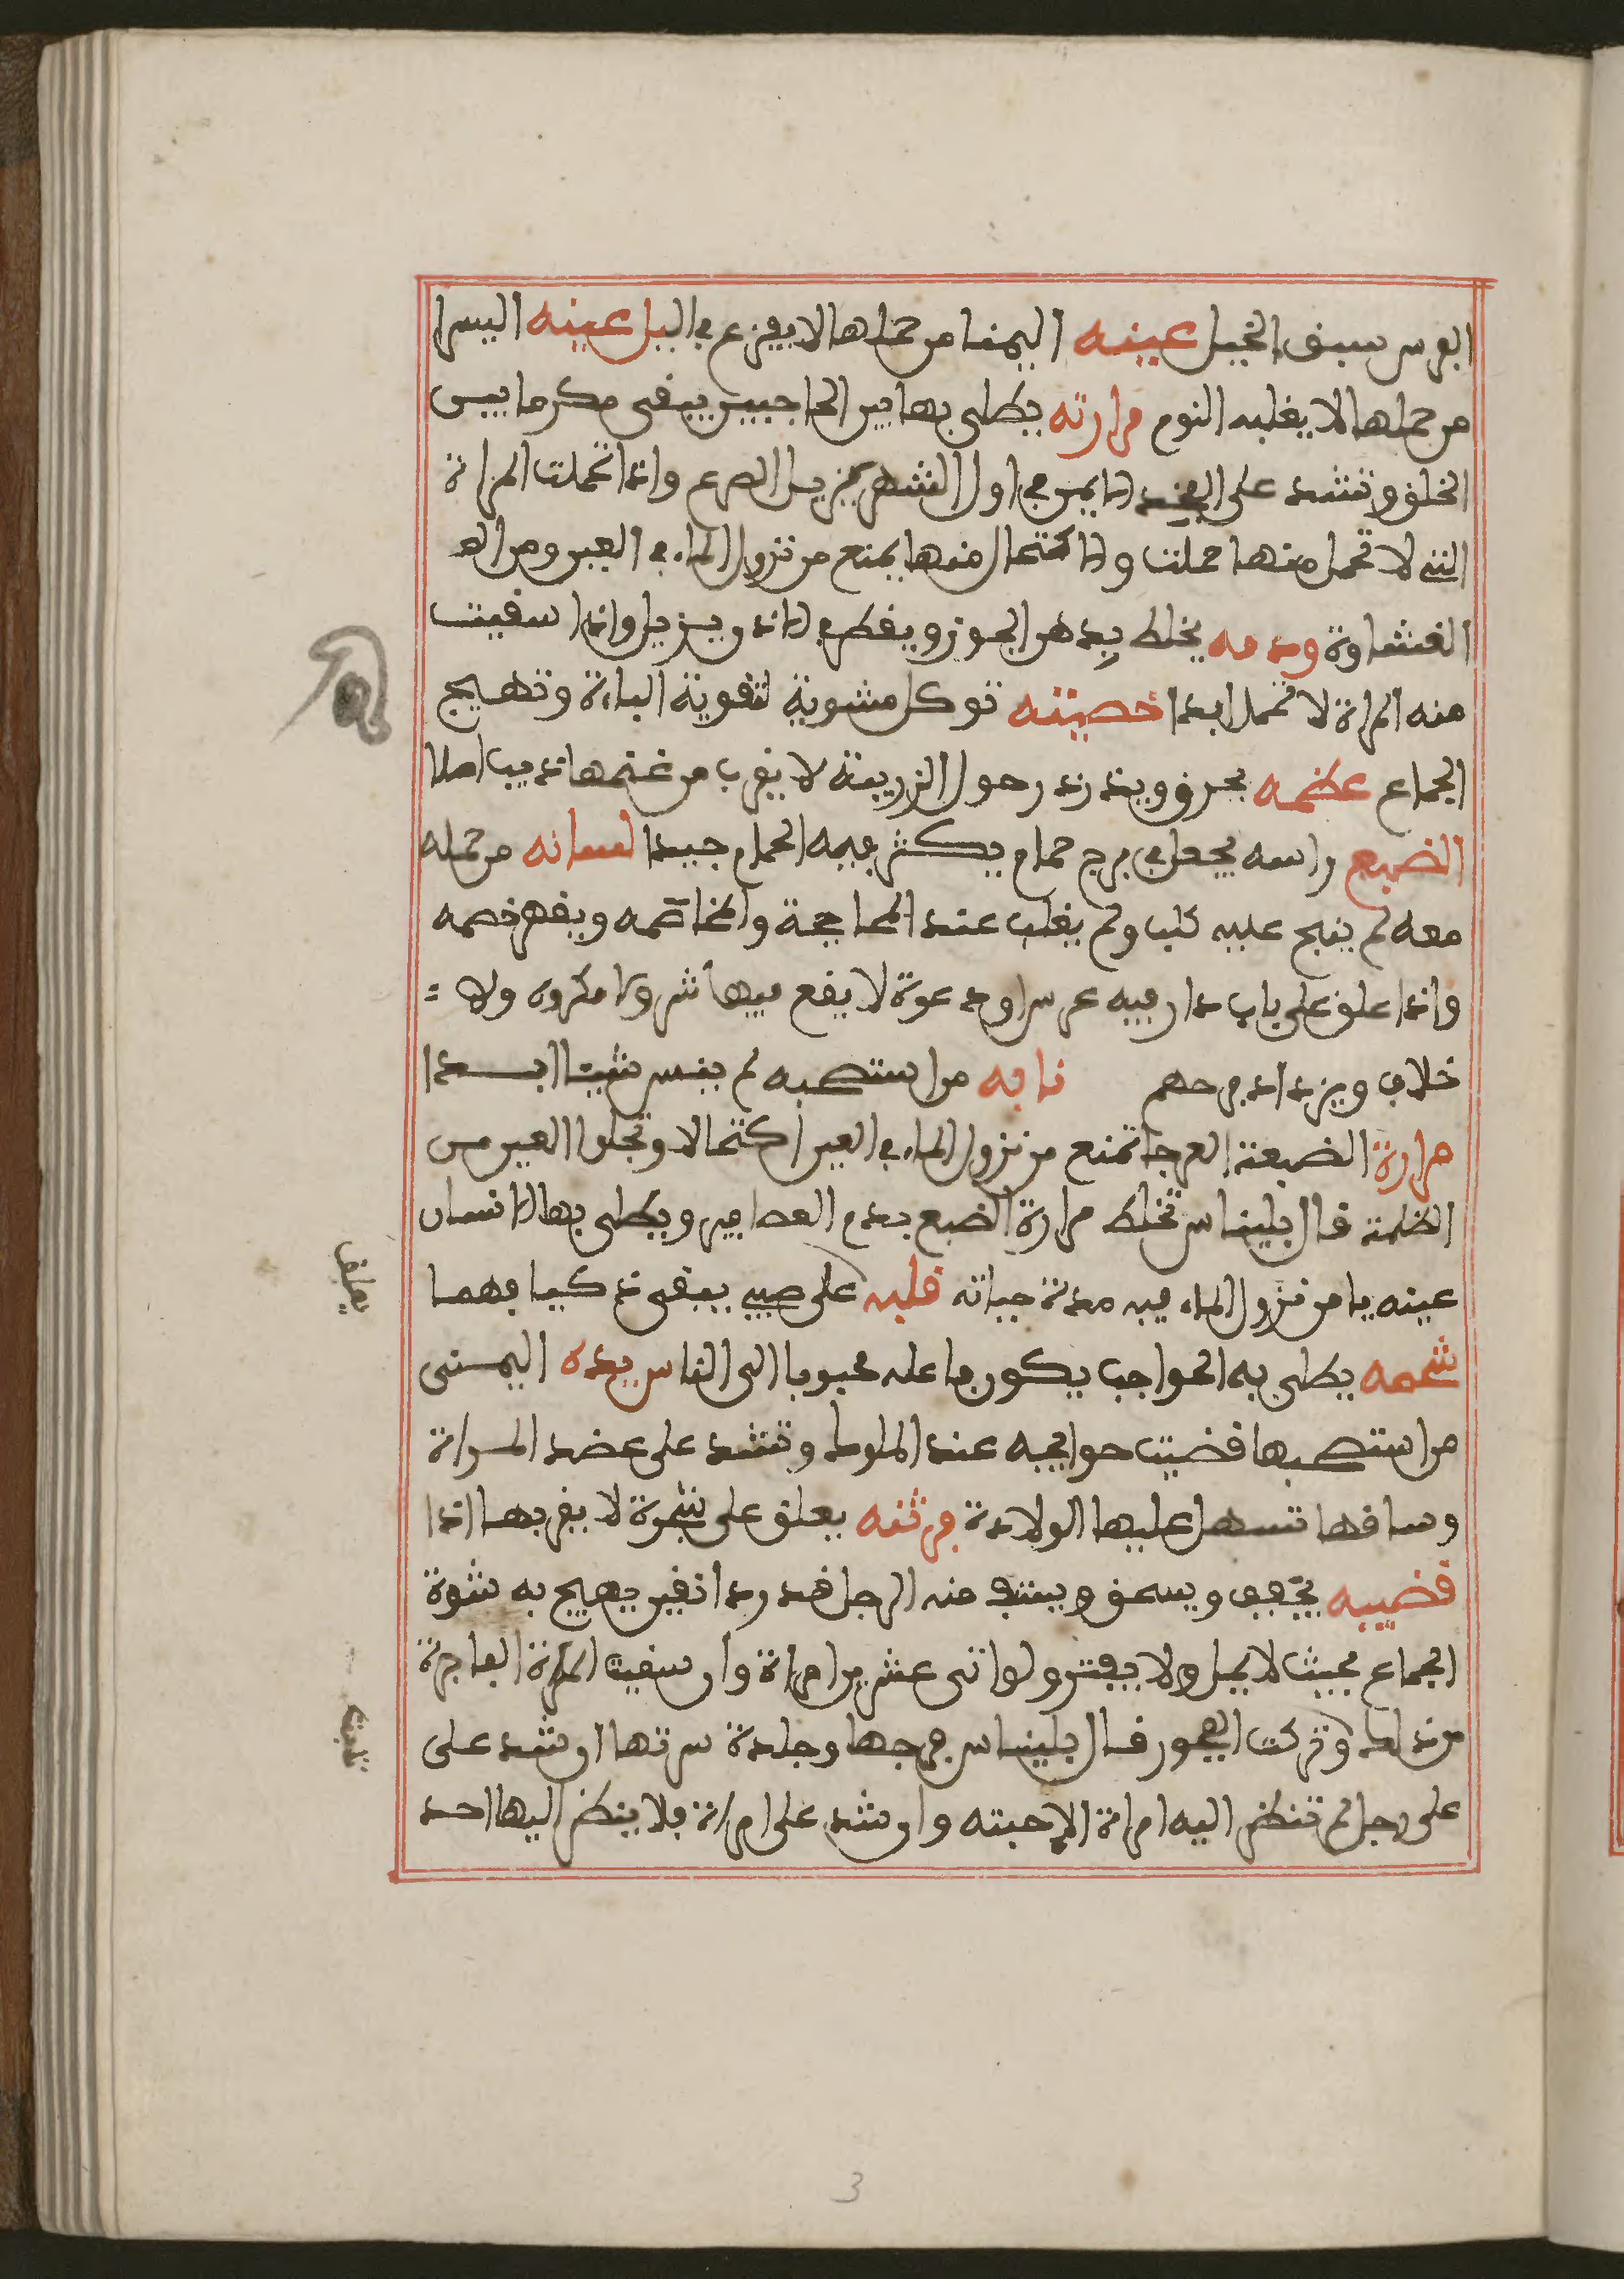 الفرس سبق الخيل عينه اليمنا من حملها لا يفزع في اليل عينه اليسرا
من حملها لا يغلبه النوم مرارته يطلى بها بين الحاجبين يبقى مكرما بين
الخلق وتشد على الفخذ الايمن في اول الشهر يزيل الصرع واذا تحملت المراة
التي لا تحمل منها حملت والاكتحال منها يمنع من نزول الماء في العين ومن الغـ
الغشاوة ودمه يخلط بدهن الجوز ويقطر في الاذن يزيل واذا سقيت
منه المراة لا تحمل ابدا خصيته توكل مشوية لتقوية الباءة وتهيج
الجماع عظمه يحرق ويذر حول الزريبة لا يقرب من غنمها ذيب اصلا
الضبع راسه يجعل في برج حمام يكثر فيه الحمام جيدا لسانه من حمله
معه لم ينبح عليه كلب ولم يغلب عند المحاججة والمخاصمه ويقهر خصمه
واذا علق على باب دار فيه عرس او دعوة لا يقع فيها شر ولا مكروه ولا
خلاف ويزداد فرحهم نابه من استصحبه لم ينس شيئا ابـــدا
مرارة الضبعة العرجا تمنع من نزول الماء في العين اكتحالا وتجلوا العين من
الظلمة قال بليناس تخلط مرارة الضبع بدم العصافير ويطلى بها الانسان
عينه يامن نزول الماء فيه مدة حياته قلبه على صبي يبقى ذكيا فهما
يعلق
شحمه يطلى به الحواجب يكون فاعله محبوبا الى الناس يده اليمنى
من استصحبها قضيت حوايجه عند الملوك وتشد على عضد المراة
وساقها تسهل عليها الولادة فرثه يعلق على شجرة لا يقربها اذا
قضيبه يجفف ويسحق ويستف منه الرجل قدر دانقين يهيج به شهوة
الجماع بحيث لا يمل ولا يفتر ولو اتى عشرين امراة وان سقيت المراة الفاجرة
من ذلك وتركت الفجور قال بليناس فرجها وجلدة سرتها ان شد على
تابت
على رجل لم تنظر اليه امراة الا حبته وان شد على امراة فلا ينظر اليها احد
3